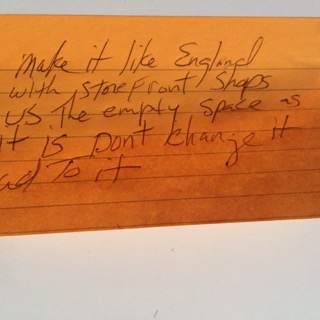 Make it like England
with storefront shops
us the empty space as
it is Dont change it
ad To it